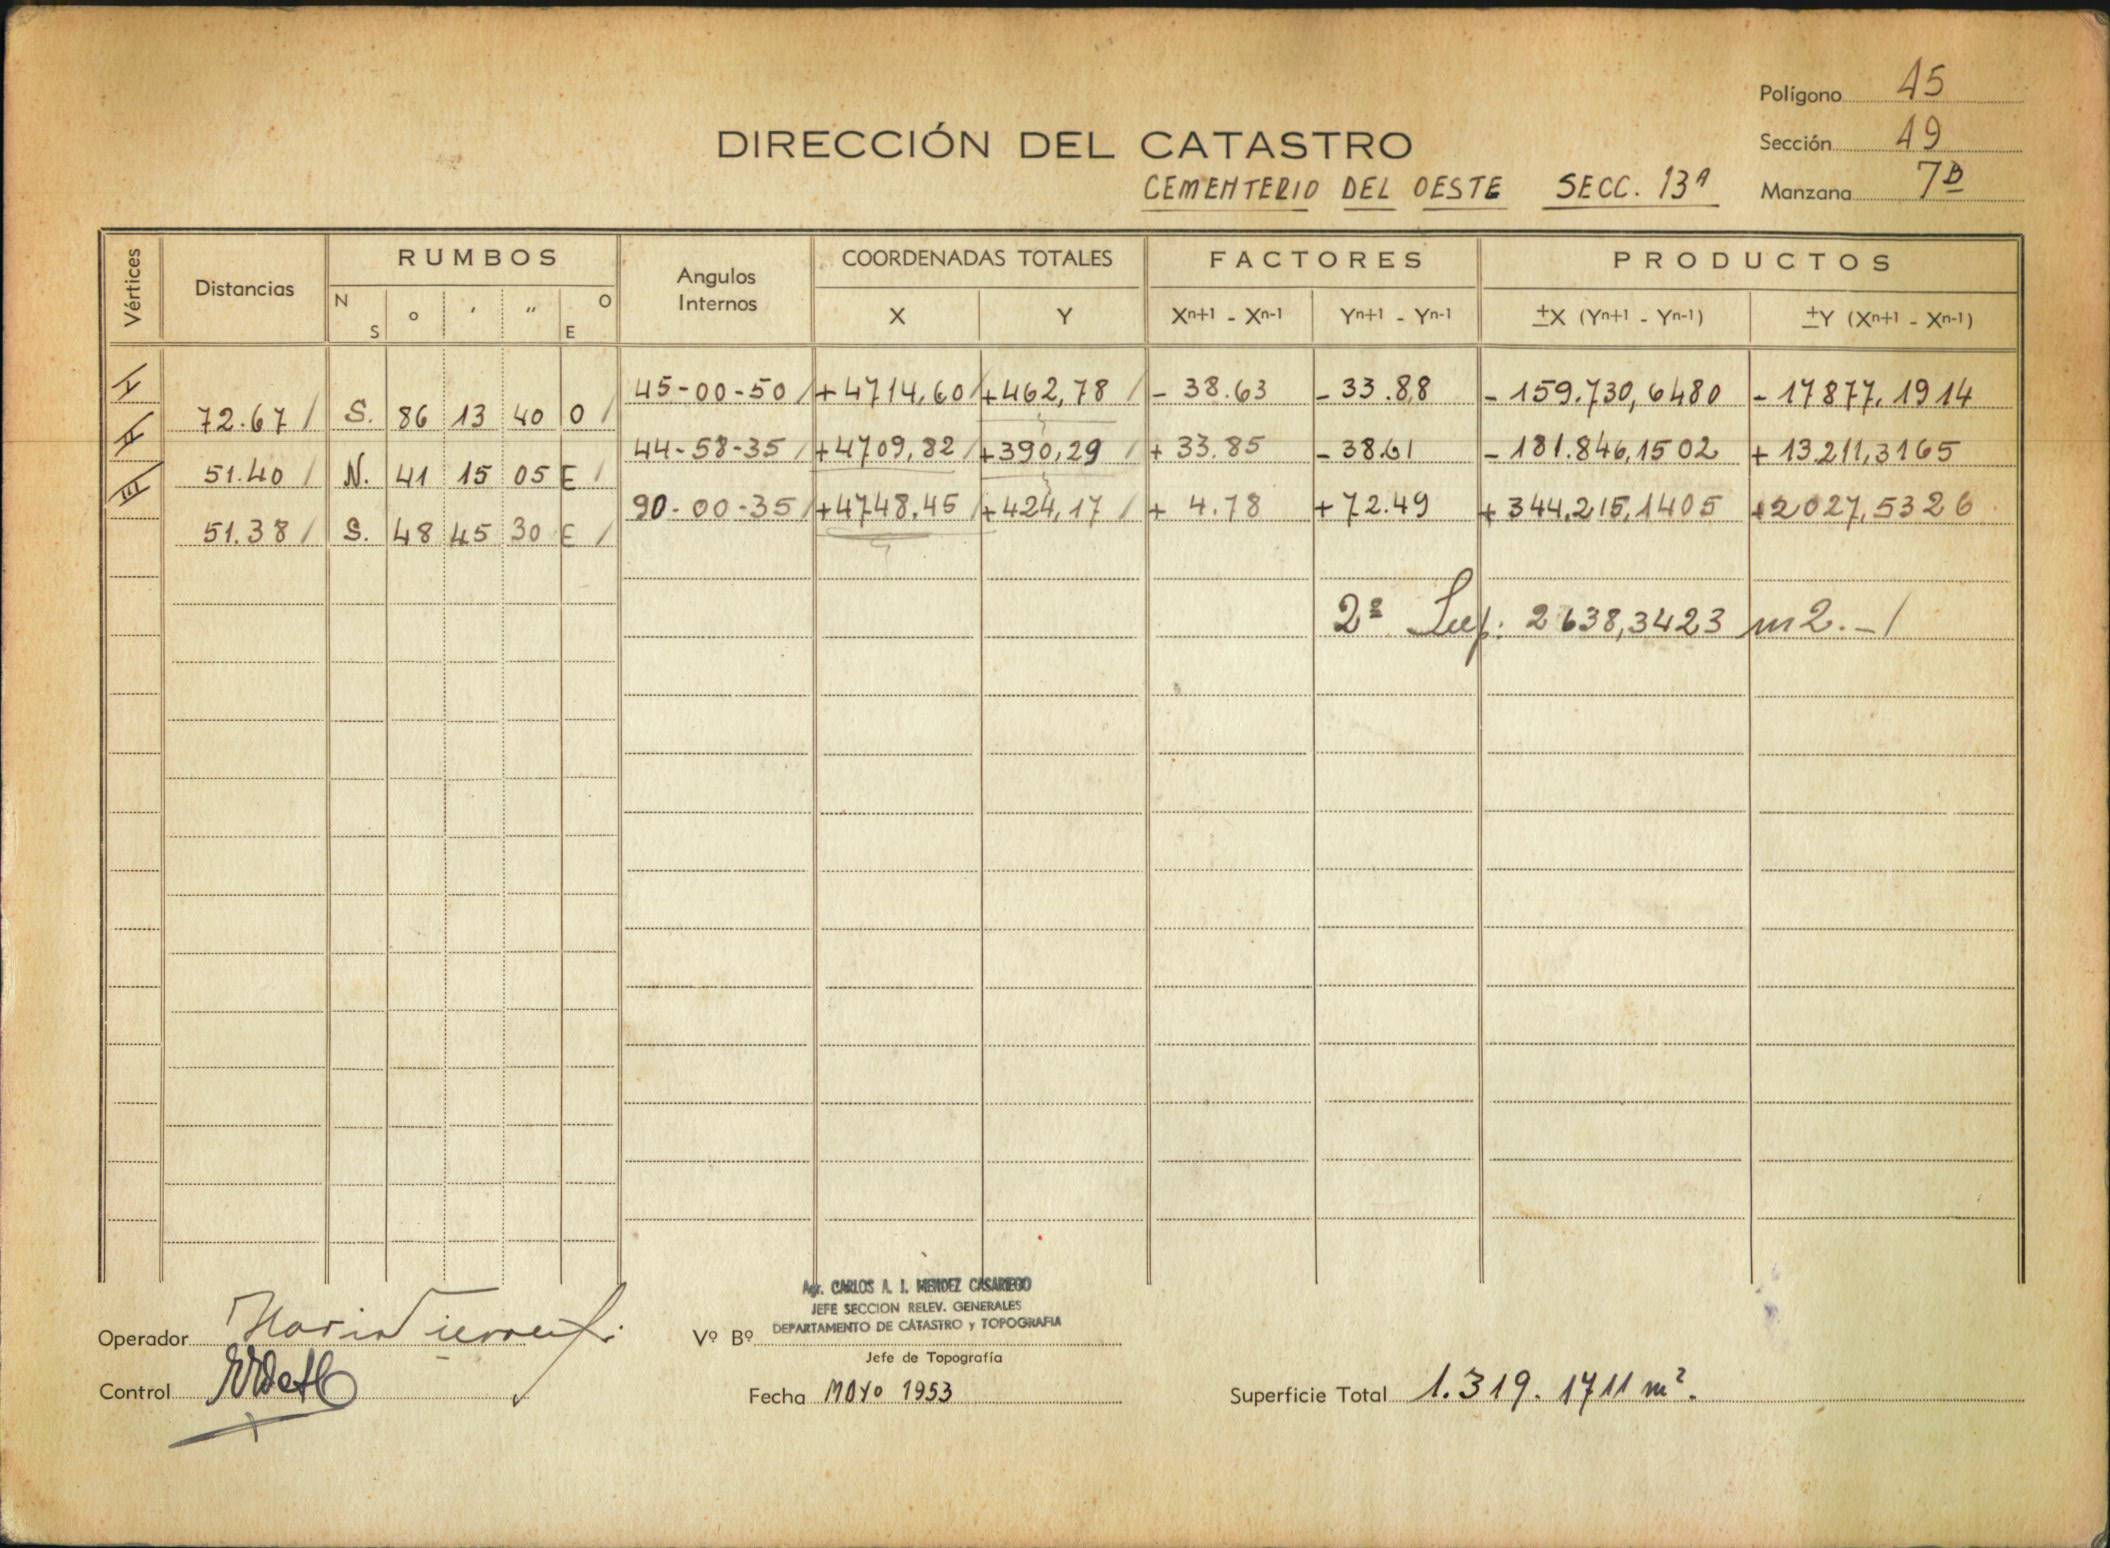 Polígono 15
DIRECCIÓN DEL CATASTRO
Sección 49
CEMENTERIO DEL OESTE SECC. 13ª
Manzana 7B
Vértices Distancias RUMBOS Angulos Internos COORDENADAS TOTALES FACTORES PRODUCTOS
N S ° ' " O E X Y Xn+1 - Xn-1 Yn+1 - Yn-1 ±X (Yn+1 - Yn-1) ±Y (Xn+1 - Xn-1)
45-00-50 / +4714,60 / +462,78 / - 38.63 - 33.88 - 159.730,6480 - 17877.1914
72.67 / S. 86 13 40 O /
44-58-35 / +4709,82 / +390,29 / + 33.85 - 38.61 - 181.846,1502 + 13211,3165
51.40 / N. 41 15 05 E /
90-00-35 / +4748,45 / +424,17 / + 4.78 + 72.49 + 344.215,1405 +2027,5326
51.38 / S. 48 45 30 E /
2ª Sup: 2638,3423 m2.- /
Agr. CARLOS A. I. MENDEZ CASARIEGO
JEFE SECCION RELEV. GENERALES
DEPARTAMENTO DE CATASTRO y TOPOGRAFIA
Operador
Vº Bº
Jefe de Topografía
Control
Fecha MAYO 1953
Superficie Total 1.319.1711 m².